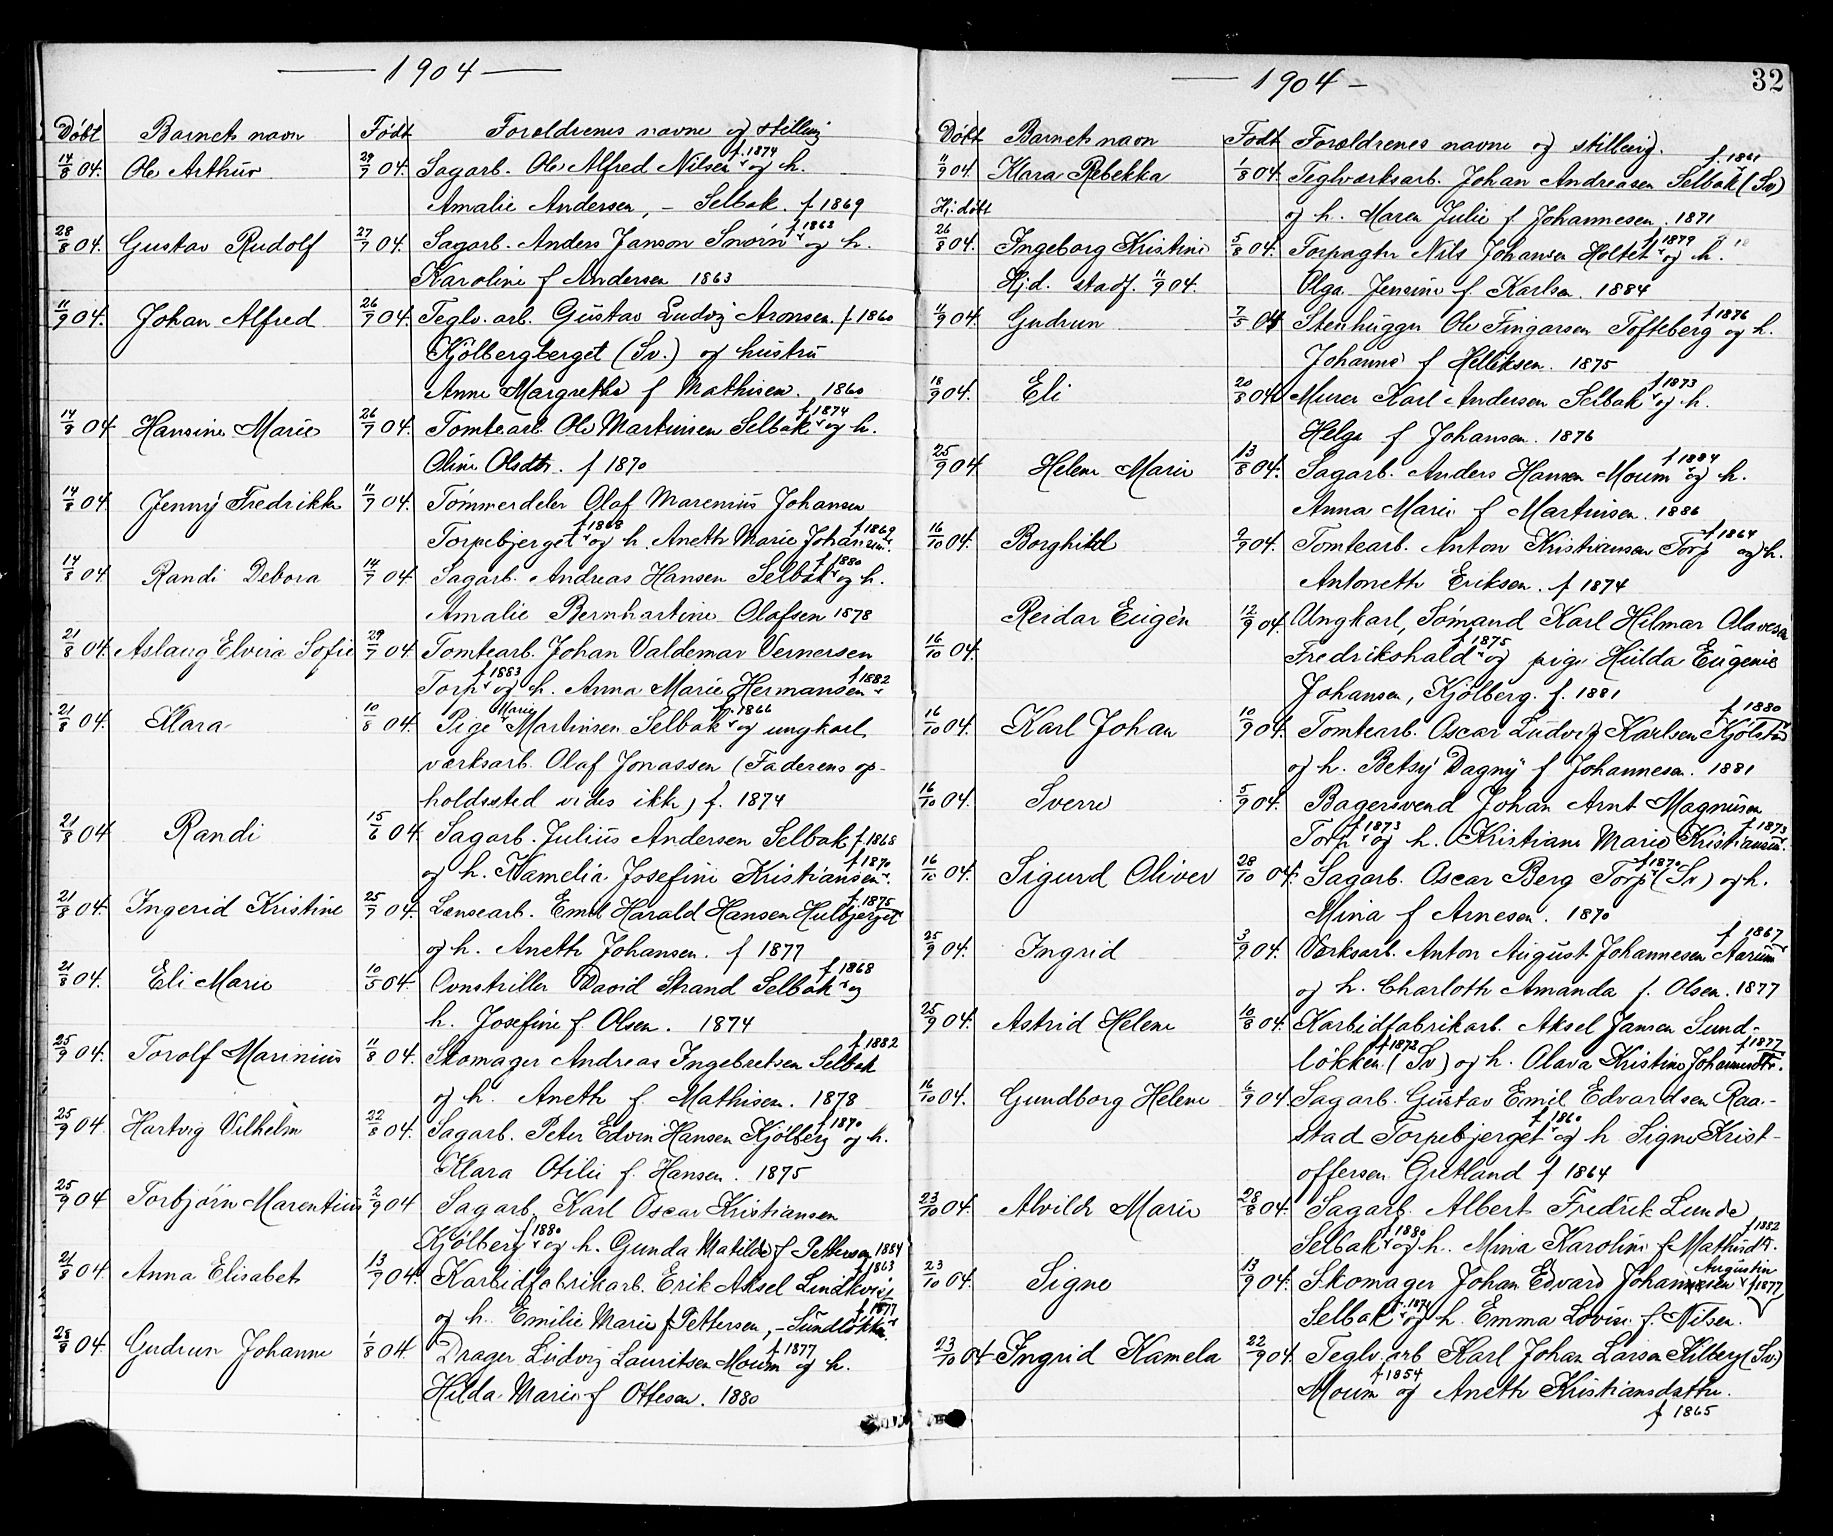 1904
Döbt Barnets navn Född Forældrenes navne og stilling
14/8 04. Ole Arthur 29/7 04. Sagarb. Ole Alfred Nilsen f. 1874 og h.
Amalie Andersen, – Selbak. f 1869
28/8 04. Gustav Rudolf 27/7 04. Sagarb. Anders Janson Snorin f 1862 og h.
Karoline f Andersen 1863
11/9 04. Johan Alfred 26/7 04. Teglv. arb. Gustav Ludvig Aronsen. f 1860
Kjölbergberget (Sv.) og hustru
Anne Margrethe f Mathisen. 1860
14/8 04 Hansine Marie 26/7 04. Tomtearb. Ole Martinisen Selbak f 1874 og h.
Oline Olsdtr. f 1870
14/8 04. Jenny Fredrikke 11/7 04. Tömmerdeler Olaf Marenius Johansen
Torpebjerget f 1868 og h. Aneth Marie Johansen f 1869.
14/8 04 Randi Debora 14/7 04. Sagarb. Andreas Hansen Selbak f 1880 og h.
Amalie Bernhartine Olafsen 1878
21/8 04. Aslaug Elvira Sofie 29/7 04. Tomtearb. Johan Valdemar Vernersen
Torp f 1883 og h. Anna Marie Hermansen f 1882
21/8 04. Klara 10/8 04. Pige Marie Martinsen Selbak f. 1866 og ungkarl,
værksarb. Olaf Jonassen (Faderens op-
holdssted vides ikke) f. 1874
21/8 04 Randi 15/6 04. Sagarb. Julius Andersen Selbak f 1868
og h. Kamelia Josefine Kristiansen f 1870.
21/8 04. Ingerid Kristine 25/7 04. Lænsearb. Emil Harald Hansen Hulbjerget f 1875
og h. Aneth Johansen. f 1877
21/8 04. Eli Marie 10/5 04. Ovnstiller David Strand Selbak f 1868 og
h. Josefine f. Olsen. 1874
25/9 04. Torolf Marinius 11/8 04. Skomager Andreas Ingebretsen Selbak f 1882
og h. Aneth f. Mathisen. 1878
25/9 04. Hartvig Vilhelm 22/8 04. Sagarb. Peter Edvin Hansen Kjölberg f 1870 og h.
Klara Otilie f. Hansen. 1875
25/9 04 Torbjörn Marentius 2/9 04 Sagarb. Karl Oscar Kristiansen
Kjölberg f 1880 og h. Gunda Matilde f Pettersen 1884
21/8 04. Anna Elisabet 13/7 04. Karbidfabrikarb. Erik Aksel Lindkvist f 1863
og h. Emilie Marie f. Pettersen, – Sundlökken f 1877
28/8 04. Gudrun Johanne 1/8 04. Drager Ludvig Lauritsen Moum f 1877 og h.
Hilda Marie f Ottesen. 1880
1904 –
32
Döbt Barnets navn Född Forældrenes navne og stilling.
11/9 04 Klara Rebekka 1/8 04. Teglværksarb. Johan Andreasen Selbak f. 1861 (Sv)
Hj. döbt og h. Maren Julie f Johannesen. 1871
26/8 04. Ingeborg Kristine 5/8 04. Forpagter Nils Johansen Holtet f 1879 og h.
Hjd. stadf. 11/9 04. Olga Jensine f. Karlsen. 1884
11/9 04. Gudrun 7/5 04 Stenhugger Ole Fingarsen Tofteberg f 1876 og h.
Johanne f Helliksen. 1875
18/9 04. Eli 20/8 04 Murer Karl Andersen Selbak f 1873 og h.
Helga f Johansen. 1876
25/9 04. Helene Marie 13/8 04. Sagarb. Anders Hansen Moum f 1884 og h.
Anna Marie f Martinsen. 1886
16/10 04. Borghild 2/9 04. Tomtearb. Anton Kristiansen Torp f 1864 og h.
Antoneth Eriksen. f 1874
Reidar Eugén 12/9 04. Ungkarl, Sömand Karl Hilmar Olavesen
16/10 04. Fredrikshald f 1875 og pige Hulda Eugenie
Johansen, Kjölberg. f. 1881
16/10 04. Karl Johan 10/9 04. Tomtearb. Oscar Ludvig Karlsen Kjölstad f 1880
og h. Betsy Dagny f Johannesen. 1881
16/10 04. Sverre 5/9 04. Bagersvend Johan Arnt Magnusen
Torp f 1873 og h. Kristiane Marie Kristiansen f 1873.
16/10 04. Sigurd Oliver 28/10 04. Sagarb. Oscar Berg Torp f 1870 (Sv) og h.
Mina f Arnesen. 1870
25/9 04. Ingrid 3/9 04. Værksarb. Anton August Johannesen Aarum f 1867
og h. Charloth Amanda f. Olsen. 1877
25/9 04. Astrid Helene 10/8 04. Karbidfabrikarb. Aksel Jansen Sund-
lökken f 1873 (Sv) og h. Olava Kristine Johannesdtr. f 1877
16/10 04. Gundborg Helene 6/9 04 Sagarb. Gustav Emil Edvardsen Raa-
stad Torpebjerget f 1860 og h Signe Krist-
offersen Gretland f 1864
23/10 04. Alvilde Marie 28/8 04. Sagarb. Albert Fredrik Lunde
Selbak f 1880 og h. Mina Karoline f Mathisdtr. f 1882
23/10 04. Signe 13/9 04. Skomager Johan Edvard Johannesen Augustin f 1877
Selbak f. 1874 og h. Emma Lovise f. Nilsen.
23/10 04 Ingrid Kamela 22/9 04. Teglv. arb Karl Johan Larsen Kilberg (Sv.)
Moum f 1854 og Aneth Kristiansdatter.
f 1865